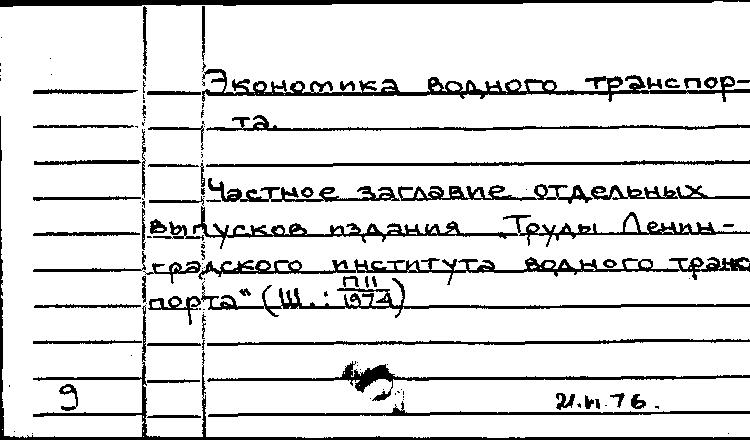 Экономика водного транспор-
та.
Частное заглавие отдельных
выпусков издания „Труды Ленин-
градского института водного транс
порта" (Ш.: П11/1974)
9
21.VI.76.